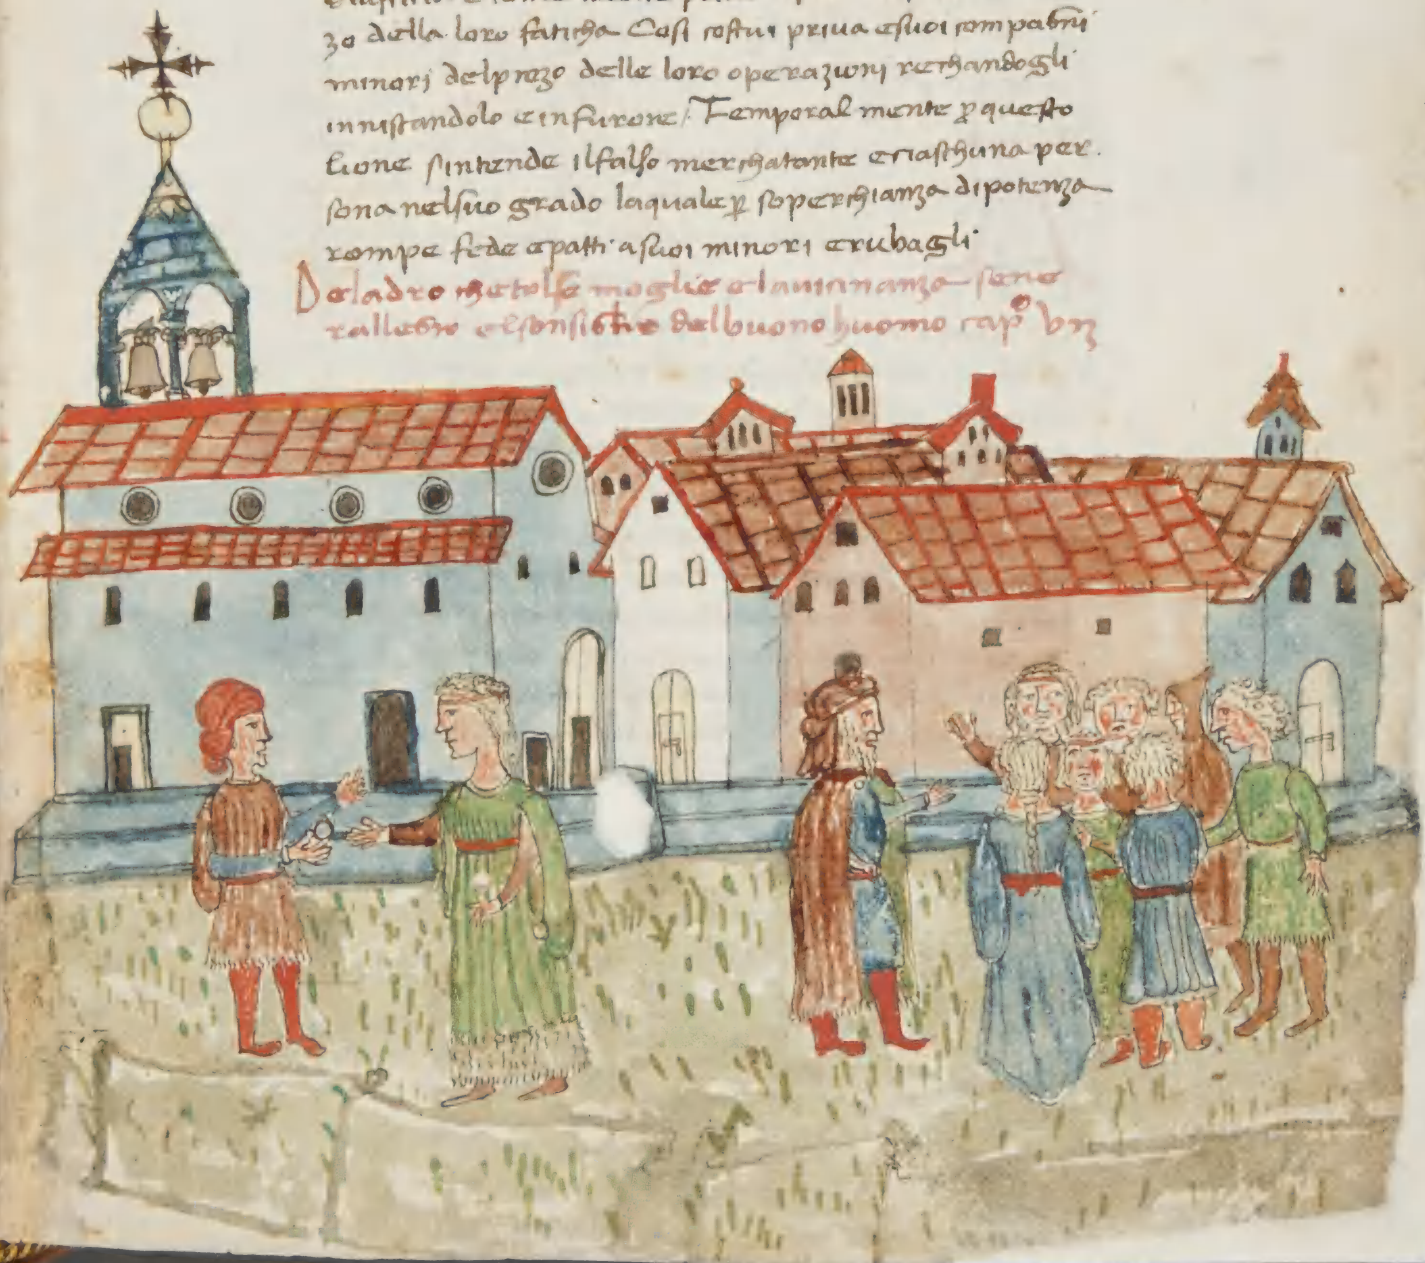 zo della loro faticha Cosi costui priva esuoi compagni
minori delprezo delle loro operazioni rechandogli
innistandolo e infurone / Temporal mente ꝑ questo
lione sintende ilfalso merchatante eciaschuna per
sona nelsuo grado laquale ꝑ soperchianza dipotenza
rompe fede epatti asuoi minori erubagli
Deladro chetolse moglie elauicinanza sene
rallegro elsonsiglio delbuono huomo capᵒ